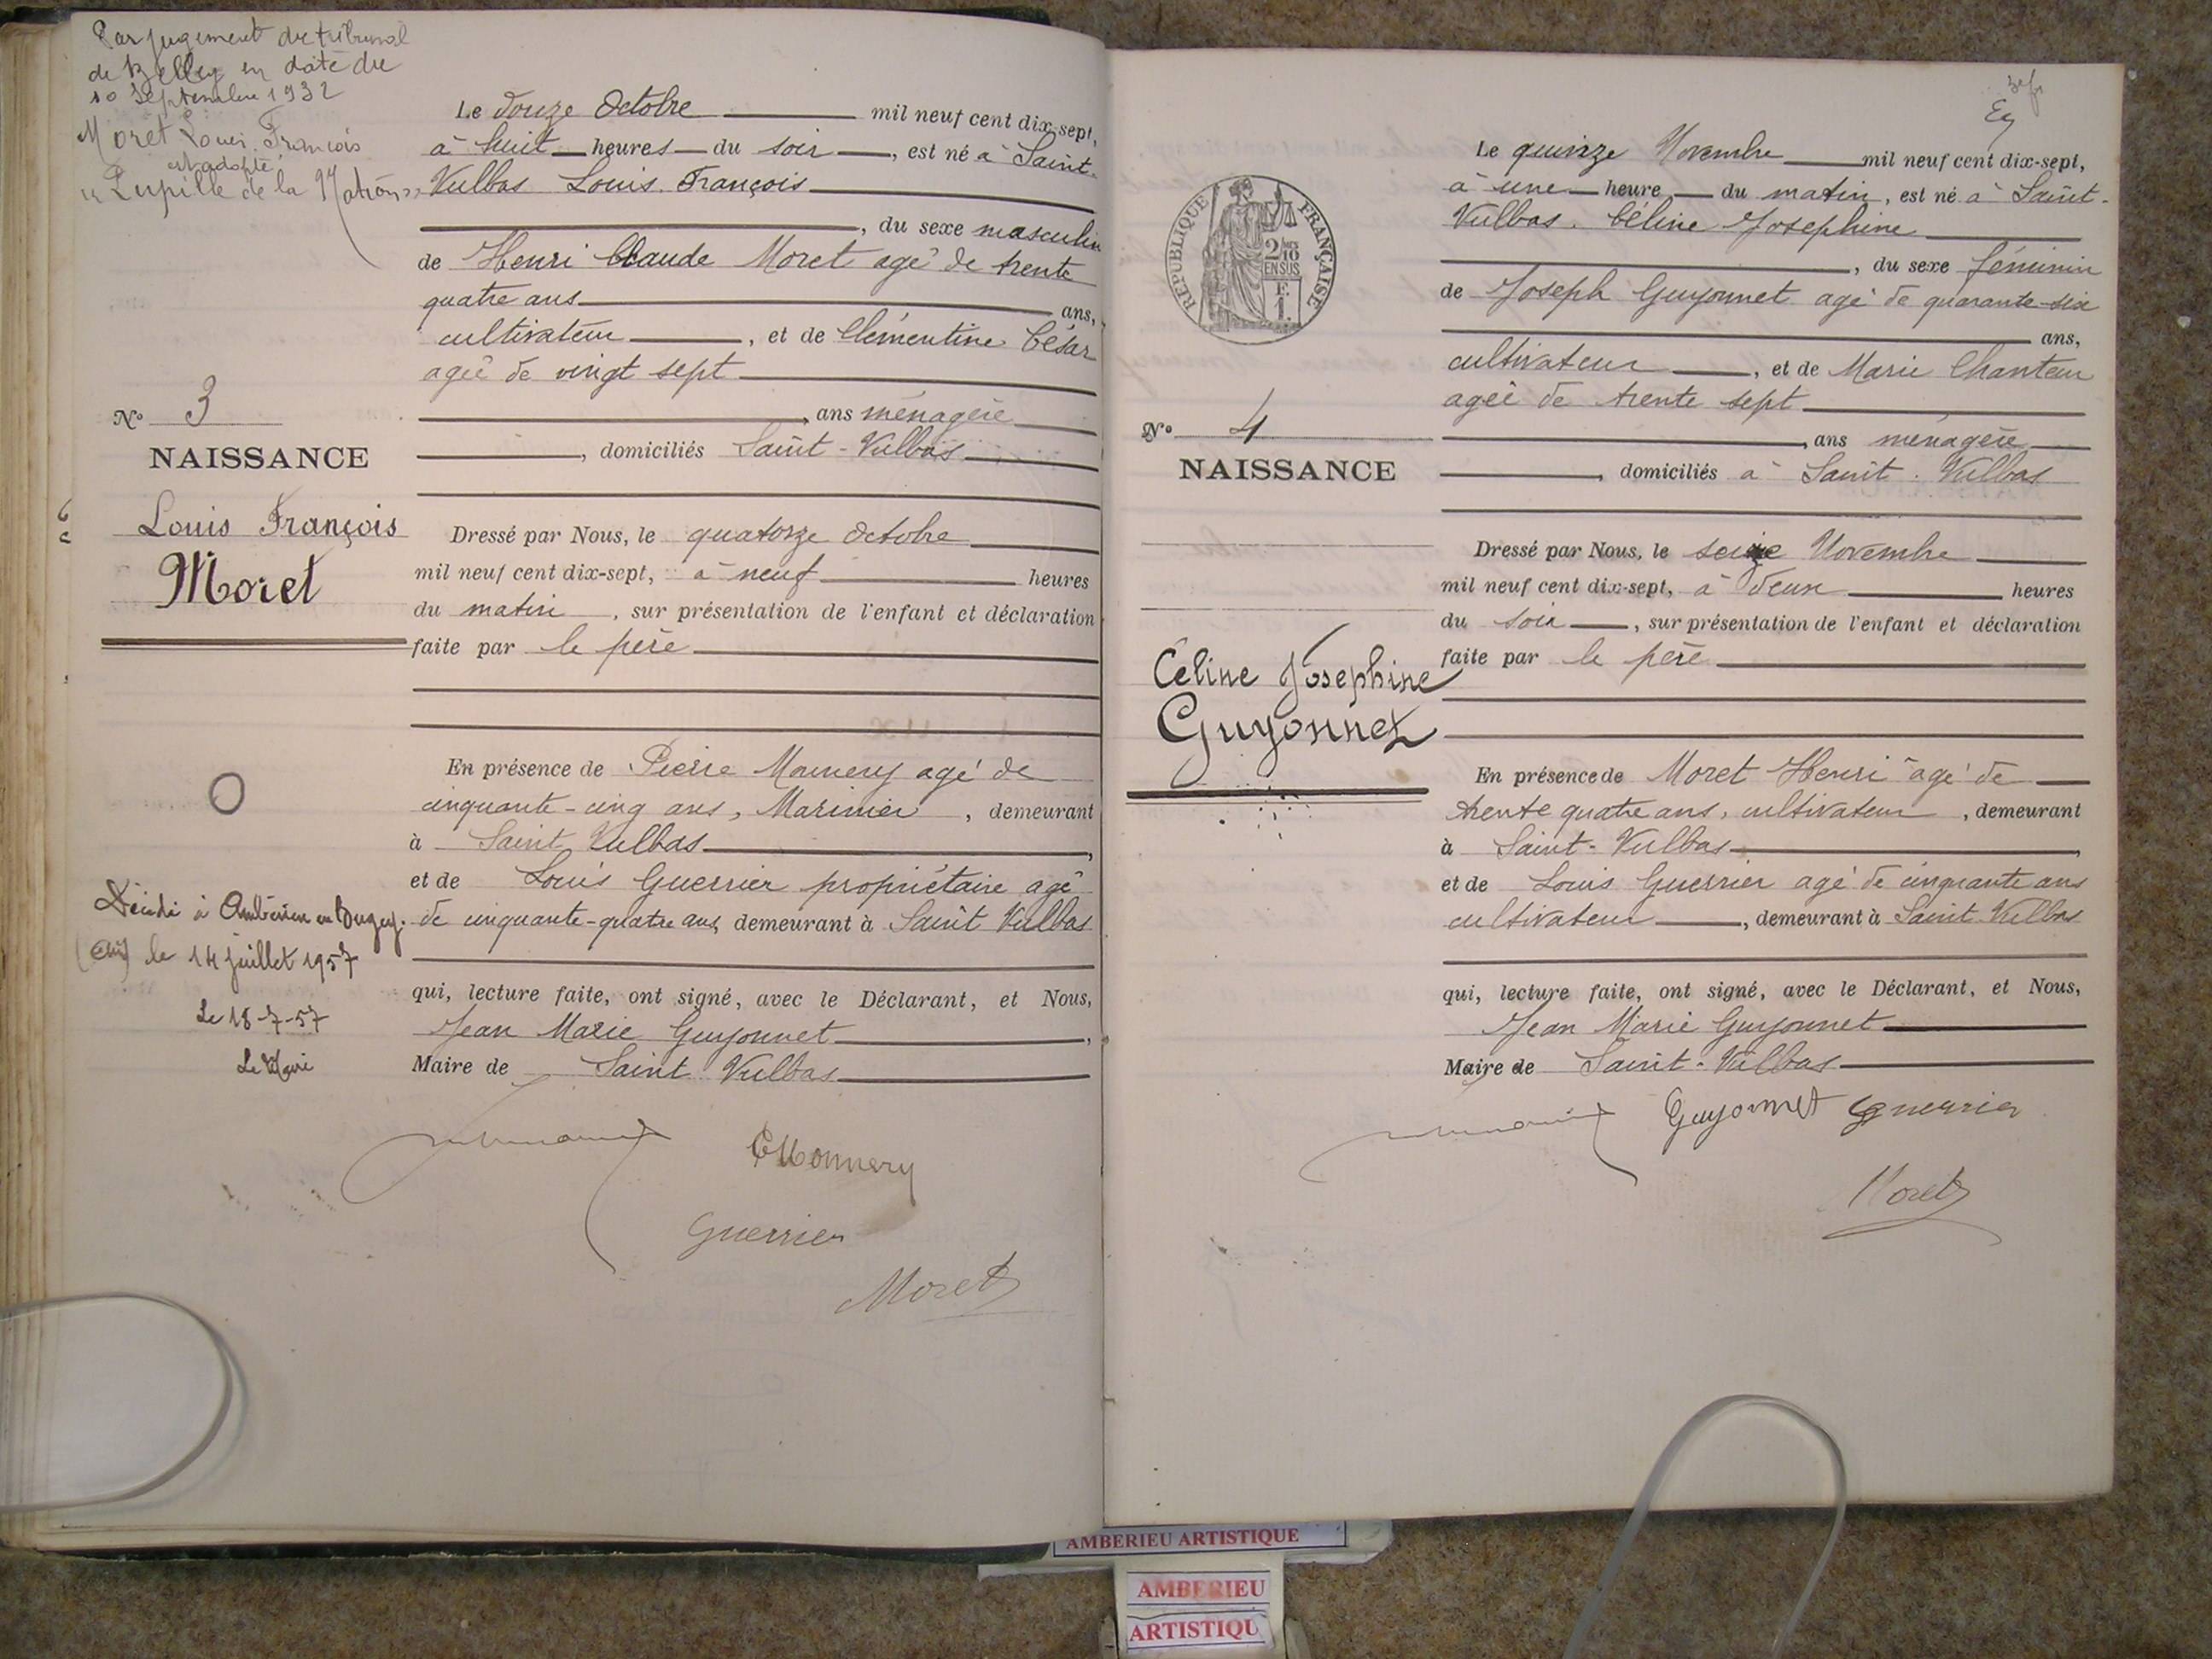 Par jugement du tribunal
de Belley en date du
10 Septembre 1932
Moret Louis François
est adopté
"Pupille de la Nation"
Nº 3
NAISSANCE
Louis François
Moret
Décédé à Ambérieu en Bugey
(Ain) le 14 juillet 1957
Le 18-7-57
Le Maire
Le douze Octobre mil neuf cent dix-sept,
à huit heures du soir, est né à Saint-
Vulbas Louis François
, du sexe masculin
de Henri Claude Moret agé de trente
quatre ans ans,
cultivateur, et de Clémentine César
agée de vingt sept
, ans ménagère
, domiciliés Saint-Vulbas
Dressé par Nous, le quatorze Octobre
mil neuf cent dix-sept, à neuf heures
du matin, sur présentation de l'enfant et déclaration
faite par le père
En présence de Pierre Monnery agé de
cinquante-cinq ans, Marinier, demeurant
à Saint Vulbas,
et de Louis Guerrier propriétaire agé
de cinquante-quatre ans, demeurant à Saint Vulbas
qui, lecture faite, ont signé, avec le Déclarant, et Nous,
Jean Marie Guyonnet,
Maire de Saint Vulbas
Monnery
Guerrier
Moret
RÉPUBLIQUE FRANÇAISE
2/10
EN SUS
F.
1.
Nº 4
NAISSANCE
Céline Josephine
Guyonnet
Le quinze Novembre mil neuf cent dix-sept,
à une heure du matin, est né à Saint-
Vulbas. Céline Josephine
, du sexe féminin
de Joseph Guyonnet agé de quarante-six
ans,
cultivateur, et de Marie Chanteur
agée de trente sept
, ans ménagère
, domiciliés à Saint-Vulbas
Dressé par Nous, le seize Novembre
mil neuf cent dix-sept, à deux heures
du soir, sur présentation de l'enfant et déclaration
faite par le père
En présence de Moret Henri agé de
trente quatre ans, cultivateur, demeurant
à Saint-Vulbas,
et de Louis Guerrier agé de cinquante ans
cultivateur, demeurant à Saint-Vulbas
qui, lecture faite, ont signé, avec le Déclarant, et Nous,
Jean Marie Guyonnet
Maire de Saint-Vulbas
Guyonnet Guerrier
Moret
AMBERIEU ARTISTIQUE
AMBERIEU
ARTISTIQU